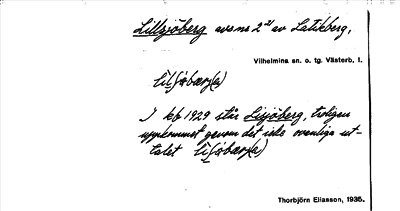 Lillsjöberg avsn. 2 av Latikberg,
Vilhelmina sn. o. tg. Västerb. l.
I kb 1929 står Lisjöberg, troligen
uppkommet genom det icke ovanliga ut-
talet
Thorbjörn Eliasson, 1935.